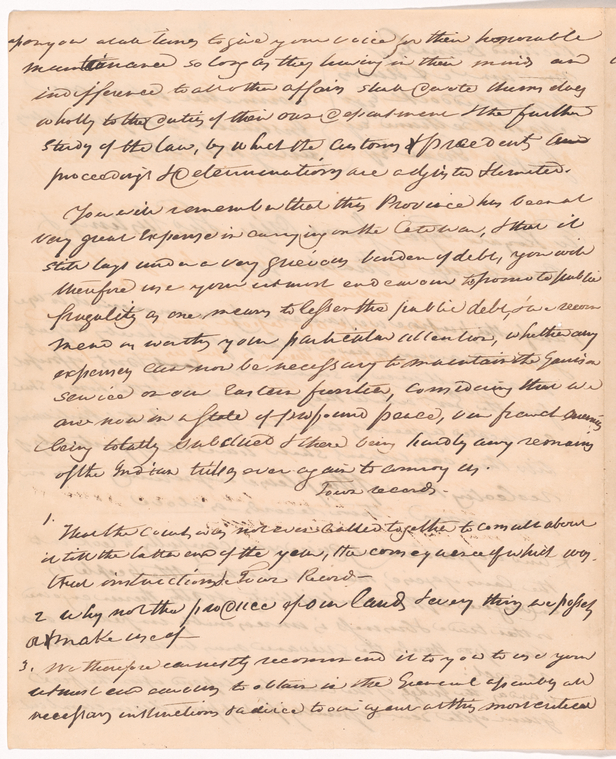 upon you at all times to give your voice for their honorable
maintenance so long as they having in their minds an
indifference to all other affairs shall devote themselves
wholly to the duties of their own department & the further
study of the law, by which the customs & precedents and
proceedings & determinations are adjusted & limited.
You will remember that this Province has been at
very great expense in carrying on the late war, & that it
still lays under a very grievous burden of debt, you will
therefore use your utmost endeavour to promote public
frugality as one means to lessen the public debt, we recom
mend as worthy your particular attention, whether any
expenses can now be necessary to maintain the Garrison
service on our Eastern frontier, considering that we
are now in a State of profound peace, our french enemies
being totally subdued & there being hardly any remains
of the Indian tribes ever again to annoy us.
Town records.
1. That the Court was not even called together to consult about
it till the latter end of the year, the consequence of which was.
their instructions Town Record
2 why not the produce of our lands & every thing we possess
or make use of
3. We therefore earnestly recommend it to you to use your
utmost endeavours to obtain in the General assembly all
necessary instructions & advice to our agent at this most critical